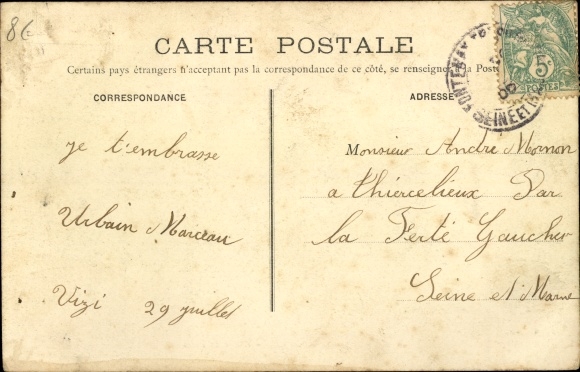 86
CARTE POSTALE
Certains pays étrangers n'acceptant pas la correspondance de ce côté, se renseigner à la Poste
CORRESPONDANCE
ADRESSE
5c
POSTES
SEINE ET
je t'embrasse
Urbain Marceau
Vizi 29 juillet
Monsieur Andre Mornon
a Thiercelieux Par
la Ferté Gaucher
Seine et Marne